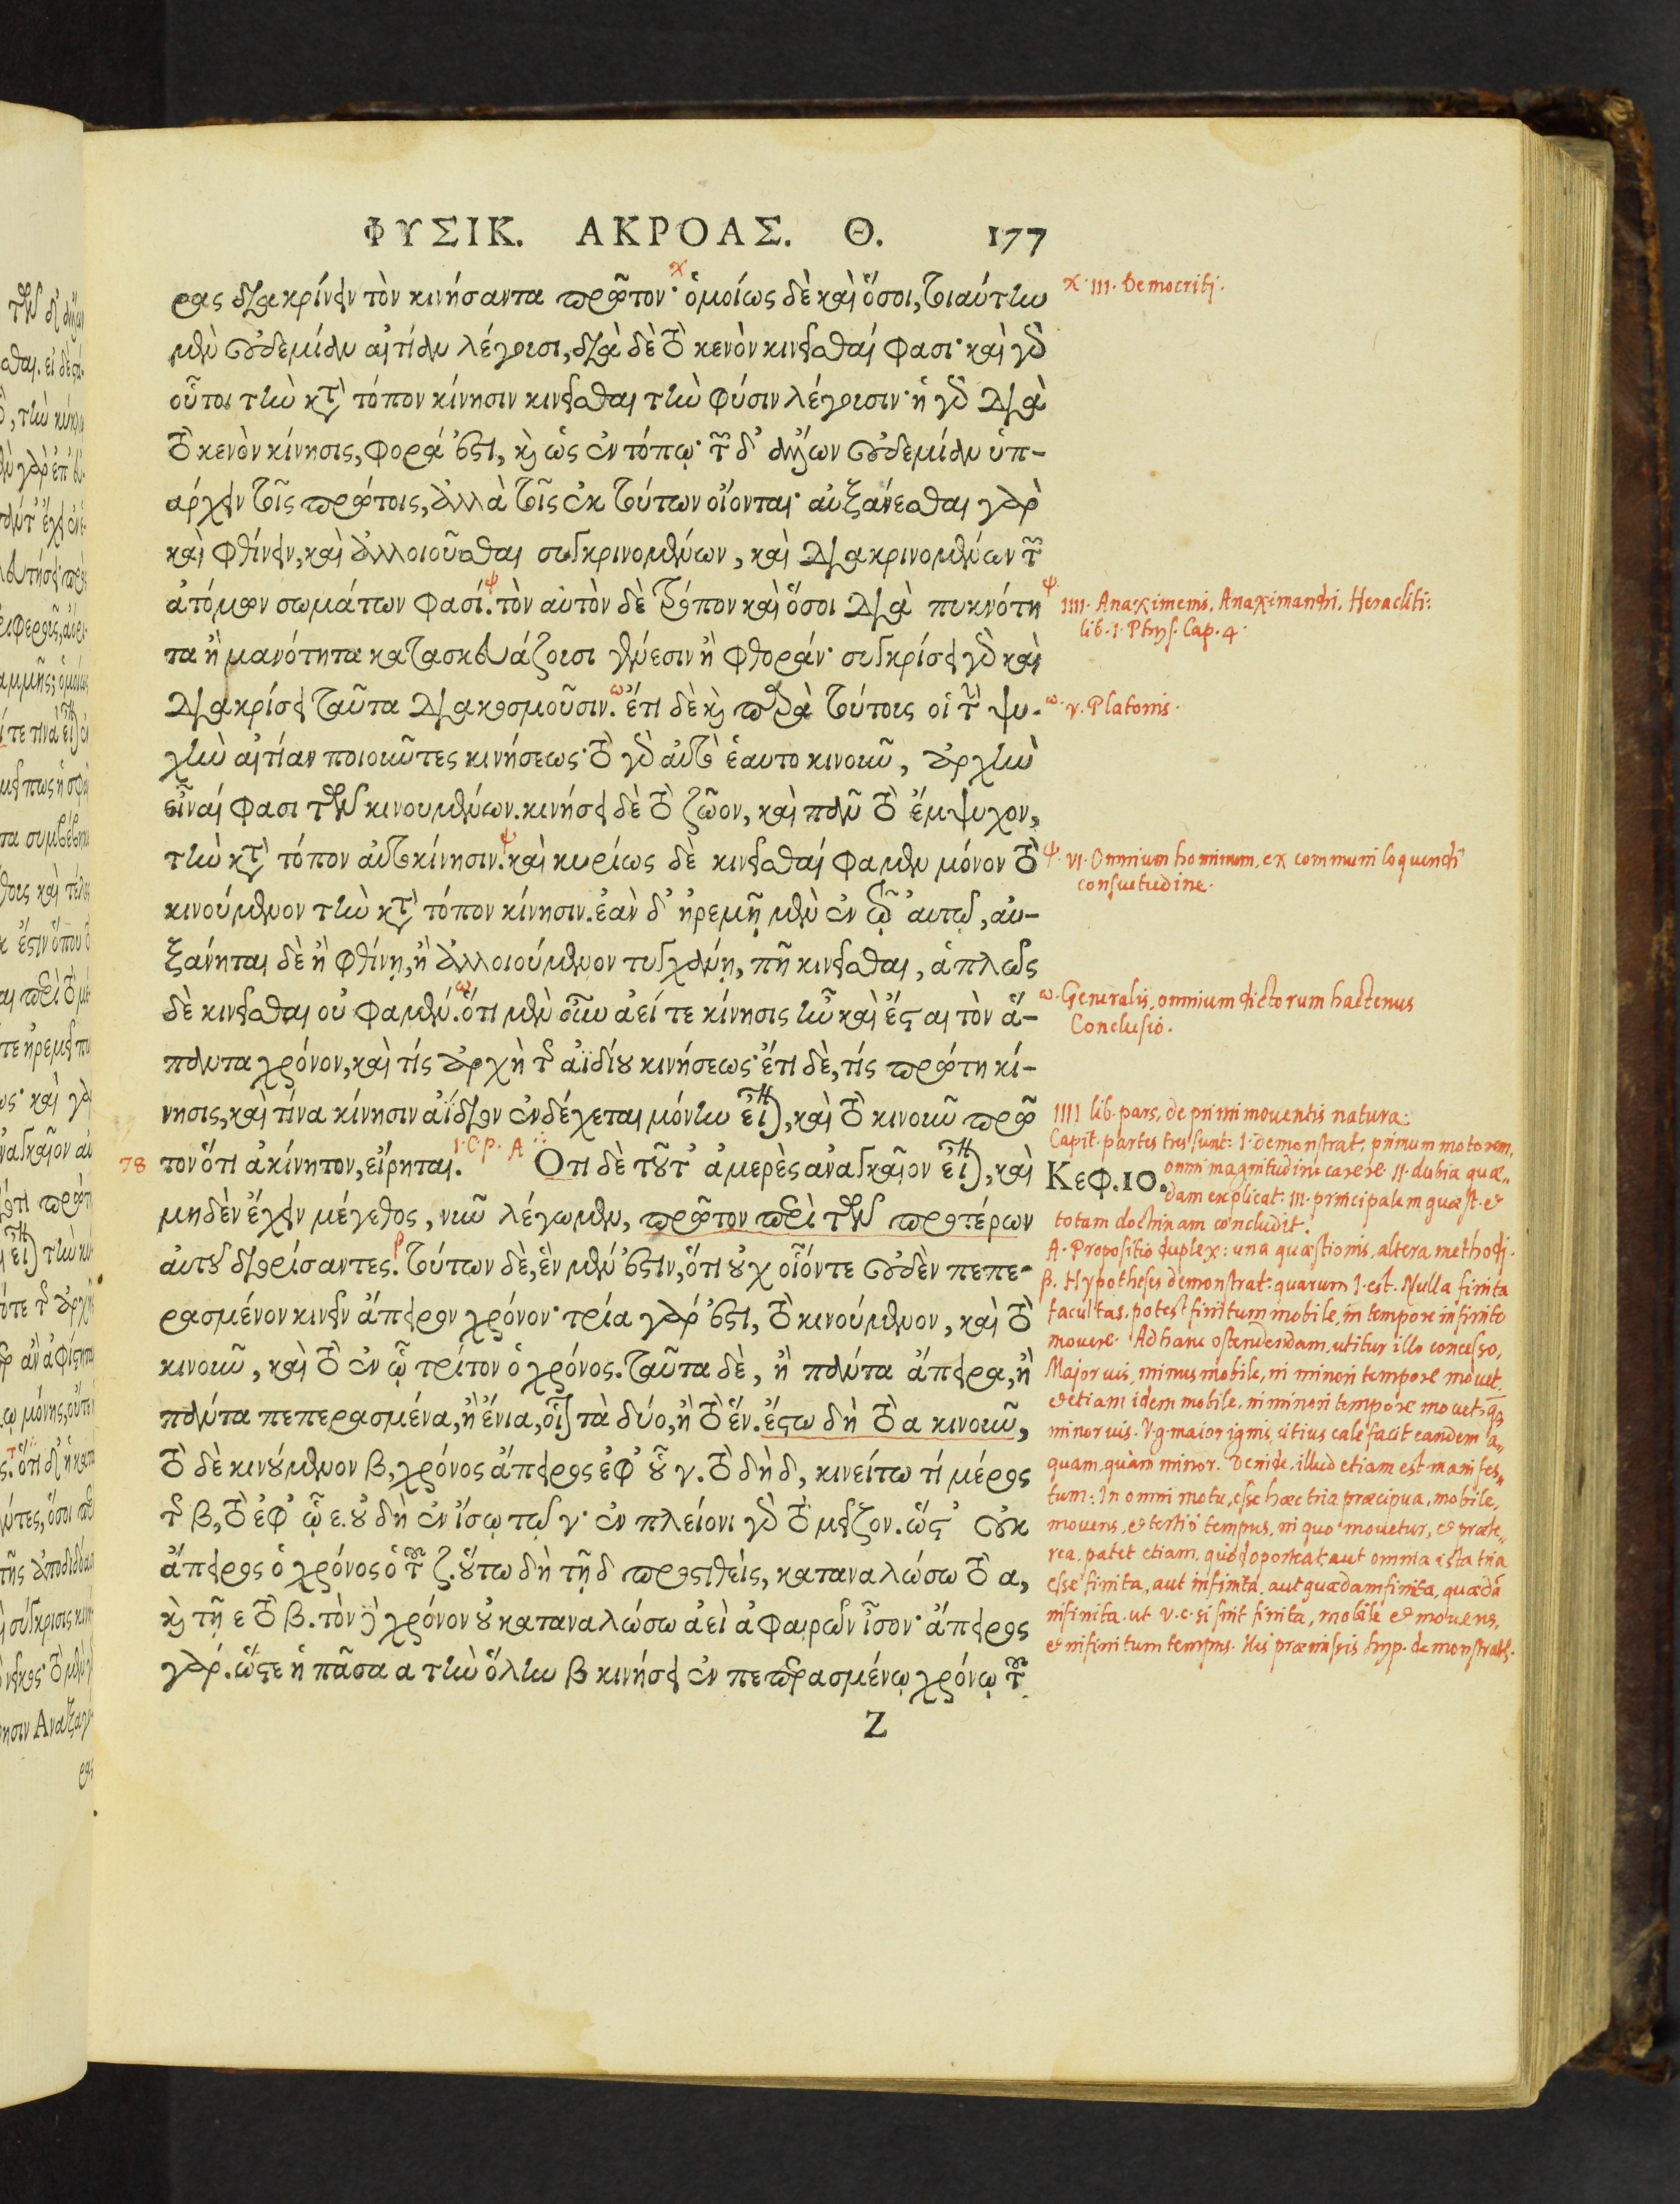 ΦΥΣΙΚ. ΑΚΡΟΑΣ. Θ. 177
ρας διακρίνειν τὸν κινήσαντα πρῶτον· ὁμοίως δὲ καὶ ὅσοι, τοιαύτην
μὲν οὐδεμίαν αἰτίαν λέγουσι, διὰ δὲ τὸ κενὸν κινεῖσθαί φασι· καὶ γὸ
οὗτοι τὴν κτ τόπον κίνησιν κινεῖσθαι τὴν φύσιν λέγουσιν· ἡ γὸ διὰ
τὸ κενὸν κίνησις, φορά ἐστι, κ̀ ὡς ἐν τόπῳ· τῶν δ' ἄλλων οὐδεμίαν ὑπ-
άρχειν τοῖς πρώτοις, ἀλλὰ τοῖς ἐκ τούτων οἴονται· αὐξάνεσθαι γὰρ
καὶ φθίνειν, καὶ ἀλλοιοῦσθαι συγκρινομένων, καὶ διακρινομένων τῶν
ἀτόμων σωμάτων φασί. τὸν αὐτὸν δὲ τρόπον καὶ ὅσοι διὰ πυκνότη
τα ἢ μανότητα κατασκευάζουσι γένεσιν ἢ φθοράν· συγκρίσει γὸ καὶ
διακρίσει ταῦτα διακοσμοῦσιν. ἔτι δὲ κ̀ παρὰ τούτους οἱ τὴν ψυ-
χὴν αἰτίαν ποιοῦντες κινήσεως· τὸ γὸ αὐτὸ ἑαυτο κινοῦν, ἀρχὴν
εἶναί φασι τῶν κινουμένων. κινήσει δὲ τὸ ζῶον, καὶ πᾶν τὸ ἔμψυχον,
τὴν κτ τόπον αὐτοκίνησιν. καὶ κυρίως δὲ κινεῖσθαί φαμεν μόνον τὸ
κινούμενον τὴν κτ τόπον κίνησιν. ἐὰν δ' ἠρεμῇ μὲν ἐν τῷ αὐτῷ, αὐ-
ξάνηται δὲ ἢ φθίνῃ, ἢ ἀλλοιούμενον τυγχάνῃ, πῆ κινεῖσθαι, ἁπλῶς
δὲ κινεῖσθαι οὐ φαμέν. ὅτι μὲν οὖν ἀεί τε κίνησις ἦν καὶ ἔσται τὸν ἅ-
παντα χρόνον, καὶ τίς ἀρχὴ τῆς ἀϊδίου κινήσεως· ἔτι δὲ, τίς πρώτη κί-
νησις, καὶ τίνα κίνησιν ἀΐδιον ἐνδέχεται μόνην εἶναι, καὶ τὸ κινοῦν πρῶ
78 τον ὅτι ἀκίνητον, εἴρηται. I. C. P. A Οτι δὲ τοῦτ' ἀμερὲς ἀναγκαῖον εἶναι, καὶ
μηδὲν ἔχειν μέγεθος, νῦν λέγωμεν, πρῶτον περὶ τῶν προτέρων
αὐτοῦ διορίσαντες. τούτων δὲ, ἓν μέν ἐστιν, ὅτι οὐχ οἷόντε οὐδὲν πεπε-
ρασμένον κινεῖν ἄπειρον χρόνον· τρία γάρ ἐστι, τὸ κινούμενον, καὶ τὸ
κινοῦν, καὶ τὸ ἐν ᾧ τρίτον ὁ χρόνος. ταῦτα δὲ, ἢ πάντα ἄπειρα, ἢ
πάντα πεπερασμένα, ἢ ἔνια, οἷον τὰ δύο, ἢ τὸ ἕν. ἔστω δὴ τὸ α κινοῦν,
τὸ δὲ κινούμενον β, χρόνος ἄπειρος ἐφ' οὗ γ. τὸ δὴ δ, κινείτω τί μέρος
τοῦ β, τὸ ἐφ' ᾧ ε. οὐ δὴ ἐν ἴσῳ τῷ γ· ἐν πλείονι γὸ τὸ μεῖζον. ὥστ' οὐκ
ἄπειρος ὁ χρόνος ὁ τοῦ ζ. οὕτω δὴ τῇ δ προστιθεὶς, καταναλώσω τὸ α,
κ̀ τῇ ε τὸ β. τὸν δὲ χρόνον οὐ καταναλώσω ἀεὶ ἀφαιρῶν ἴσον· ἄπειρος
γάρ. ὥστε ἡ πᾶσα α τὴν ὅλην β κινήσει ἐν πεπερασμένῳ χρόνῳ τοῦ
Z
χ. III. Democriti.
ψ. IIII. Anaximenis. Anaximandri. Heracliti:
lib. 1. Phys. Cap. 4.
ω. v. Platonis.
ψ. VI. Omnium hominum, ex communi loquendi
consuetudine.
ω. Generalis, omnium dictorum hactenus
Conclusio.
IIII lib. pars, de primi moventis natura:
Capit. partes tres sunt: I. demonstrat, primum motorem,
Κεφ. 10. omni magnitudine carere. II. dubia quæ-
dam explicat. III. principalem quæst. et
totam doctrinam concludit.
A. Propositio duplex: una quæstionis, altera methodi.
β. Hypotheses demonstrat: quarum I. est. Nulla finita
facultas, potest finitum mobile, in tempore infinito
movere. Ad hanc ostendendam, utitur illo concesso,
Major vis, minus mobile, in minori tempore movet.
et etiam idem mobile, in minori tempore movet, qȝ
minor vis. V.g. maior ignis, citius calefacit eandem a-
quam, quàm minor. Deinde, illud etiam est manifes-
tum: In omni motu, esse hæc tria præcipua, mobile,
movens, et tertiò tempus, in quo movetur, et præte-
rea, patet etiam, quòd oporteat aut omnia ista tria
esse finita, aut infinita, aut quædam finita, quædā
infinita. ut v.c. si sint finita, mobile et movens,
et infinitum tempus. His præmissis hyp. demonstrat.